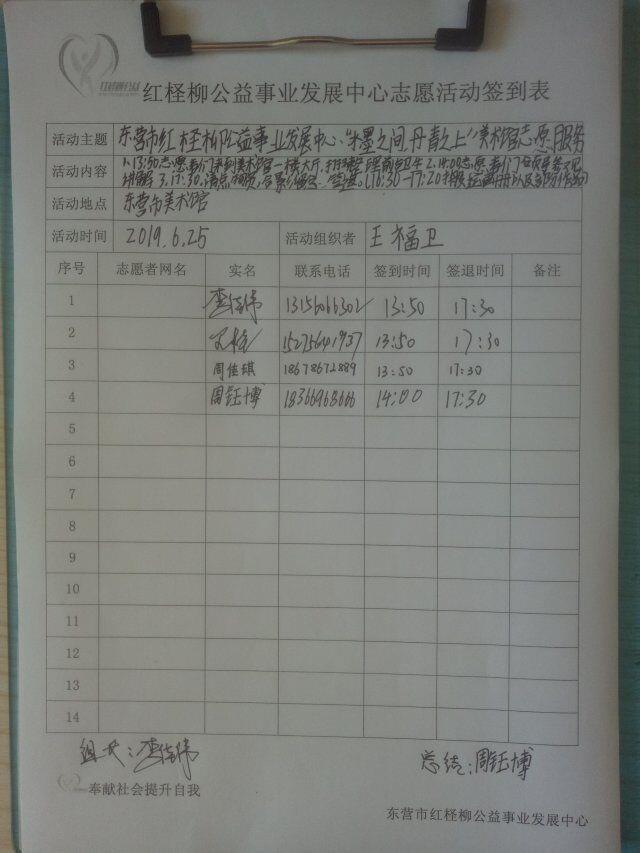 红柽柳公益事业发展中心志愿活动签到表
活动主题 东营市红柽柳公益事业发展中心·"水墨之间,丹青之上"美术馆志愿服务
活动内容 1、13:50志愿者们来到美术馆一楼大厅,打扫整理 2、14:00志愿者们
讲解 3、17:30,清点物资,合影 签退。(16:30—17:20
活动地点 东营市美术馆
活动时间 2019.6.25 活动组织者 王福卫
序号 志愿者网名 实名 联系电话 签到时间 签退时间 备注
1 李佳伟 13156066302 13:50 17:30
2 15275641937 13:50 17:30
3 周佳琪 18678672889 13:50 17:30
4 周钰博 18366968666 14:00 17:30
5
6
7
8
9
10
11
12
13
14
组长:李佳伟 总结:周钰博
奉献社会提升自我
东营市红柽柳公益事业发展中心